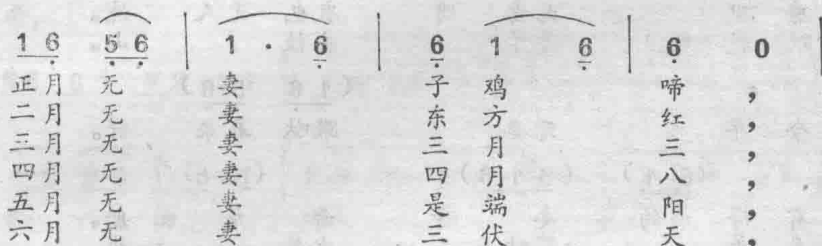 1 6 5 6 | 1 · 6 | 6 1 6 | 6 0 |
正月 无 妻 子 鸡 啼，
二月 无 妻 东 方 红，
三月 无 妻 三 月 三，
四月 无 妻 四 月 八，
五月 无 妻 是 端 阳，
六月 无 妻 三 伏 天，